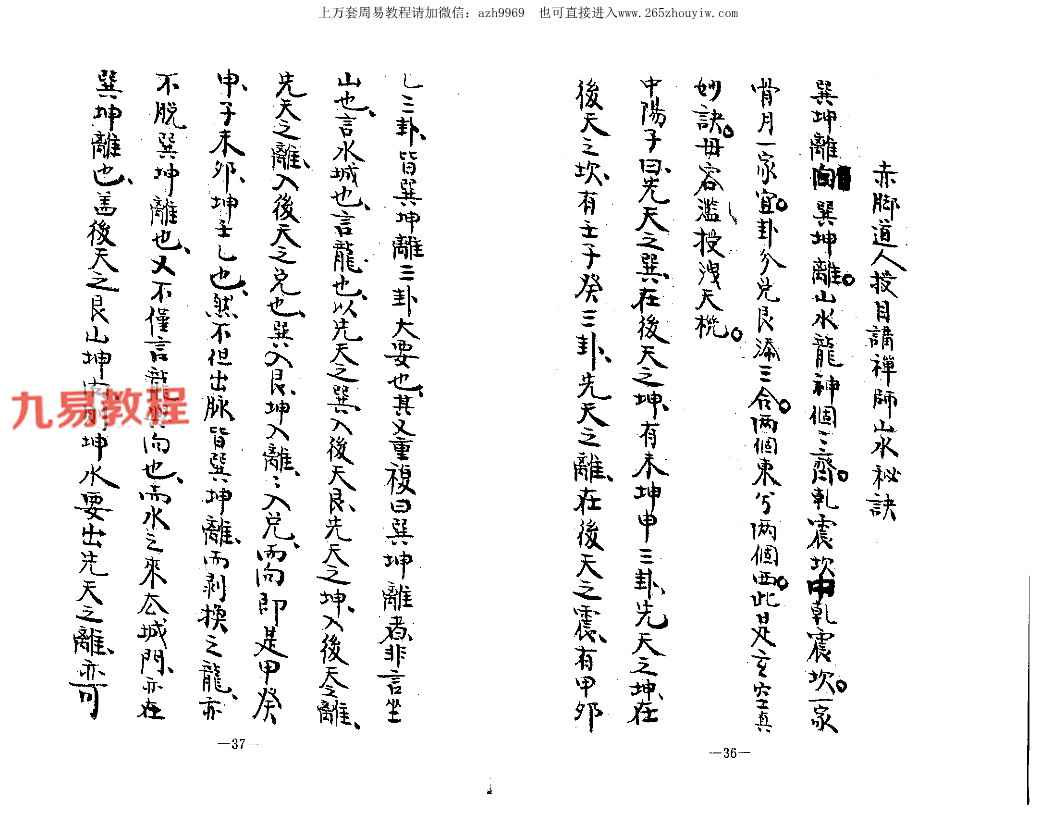 上万套周易教程请加微信：azh9969　也可直接进入www.265zhouyiw.com
赤脚道人授目講禪師山水秘訣
巽坤離向巽坤離。山水龍神個三齊。乾震坎中乾震坎。一家
骨月一家宜。卦分兌艮添三合。两個東分两個西。此是玄空真
妙訣。毋容濫授洩天機。
中陽子曰、先天之巽、在後天之坤、有未坤申三卦、先天之坤、在
後天之坎、有壬子癸三卦、先天之離、在後天之震、有甲卯
乙三卦、皆巽坤離三卦大要也、其又重複曰巽坤離者、非言坐
山也、言水城也、言龍也、以先天之巽入後天艮、先天之坤、入後天之離、
先天之離、入後天之兌也、巽入艮、坤入離、離入兌、而向即是甲癸
申、子未卯、坤壬乙也、然不但出脉皆巽坤離、而剥換之龍、亦
不脱巽坤離也、又不僅言龍與向也、而水之來去城門、亦在
巽坤離也、盖後天之艮山坤向坤水要出先天之離、亦可
九易教程
—37—
—36—